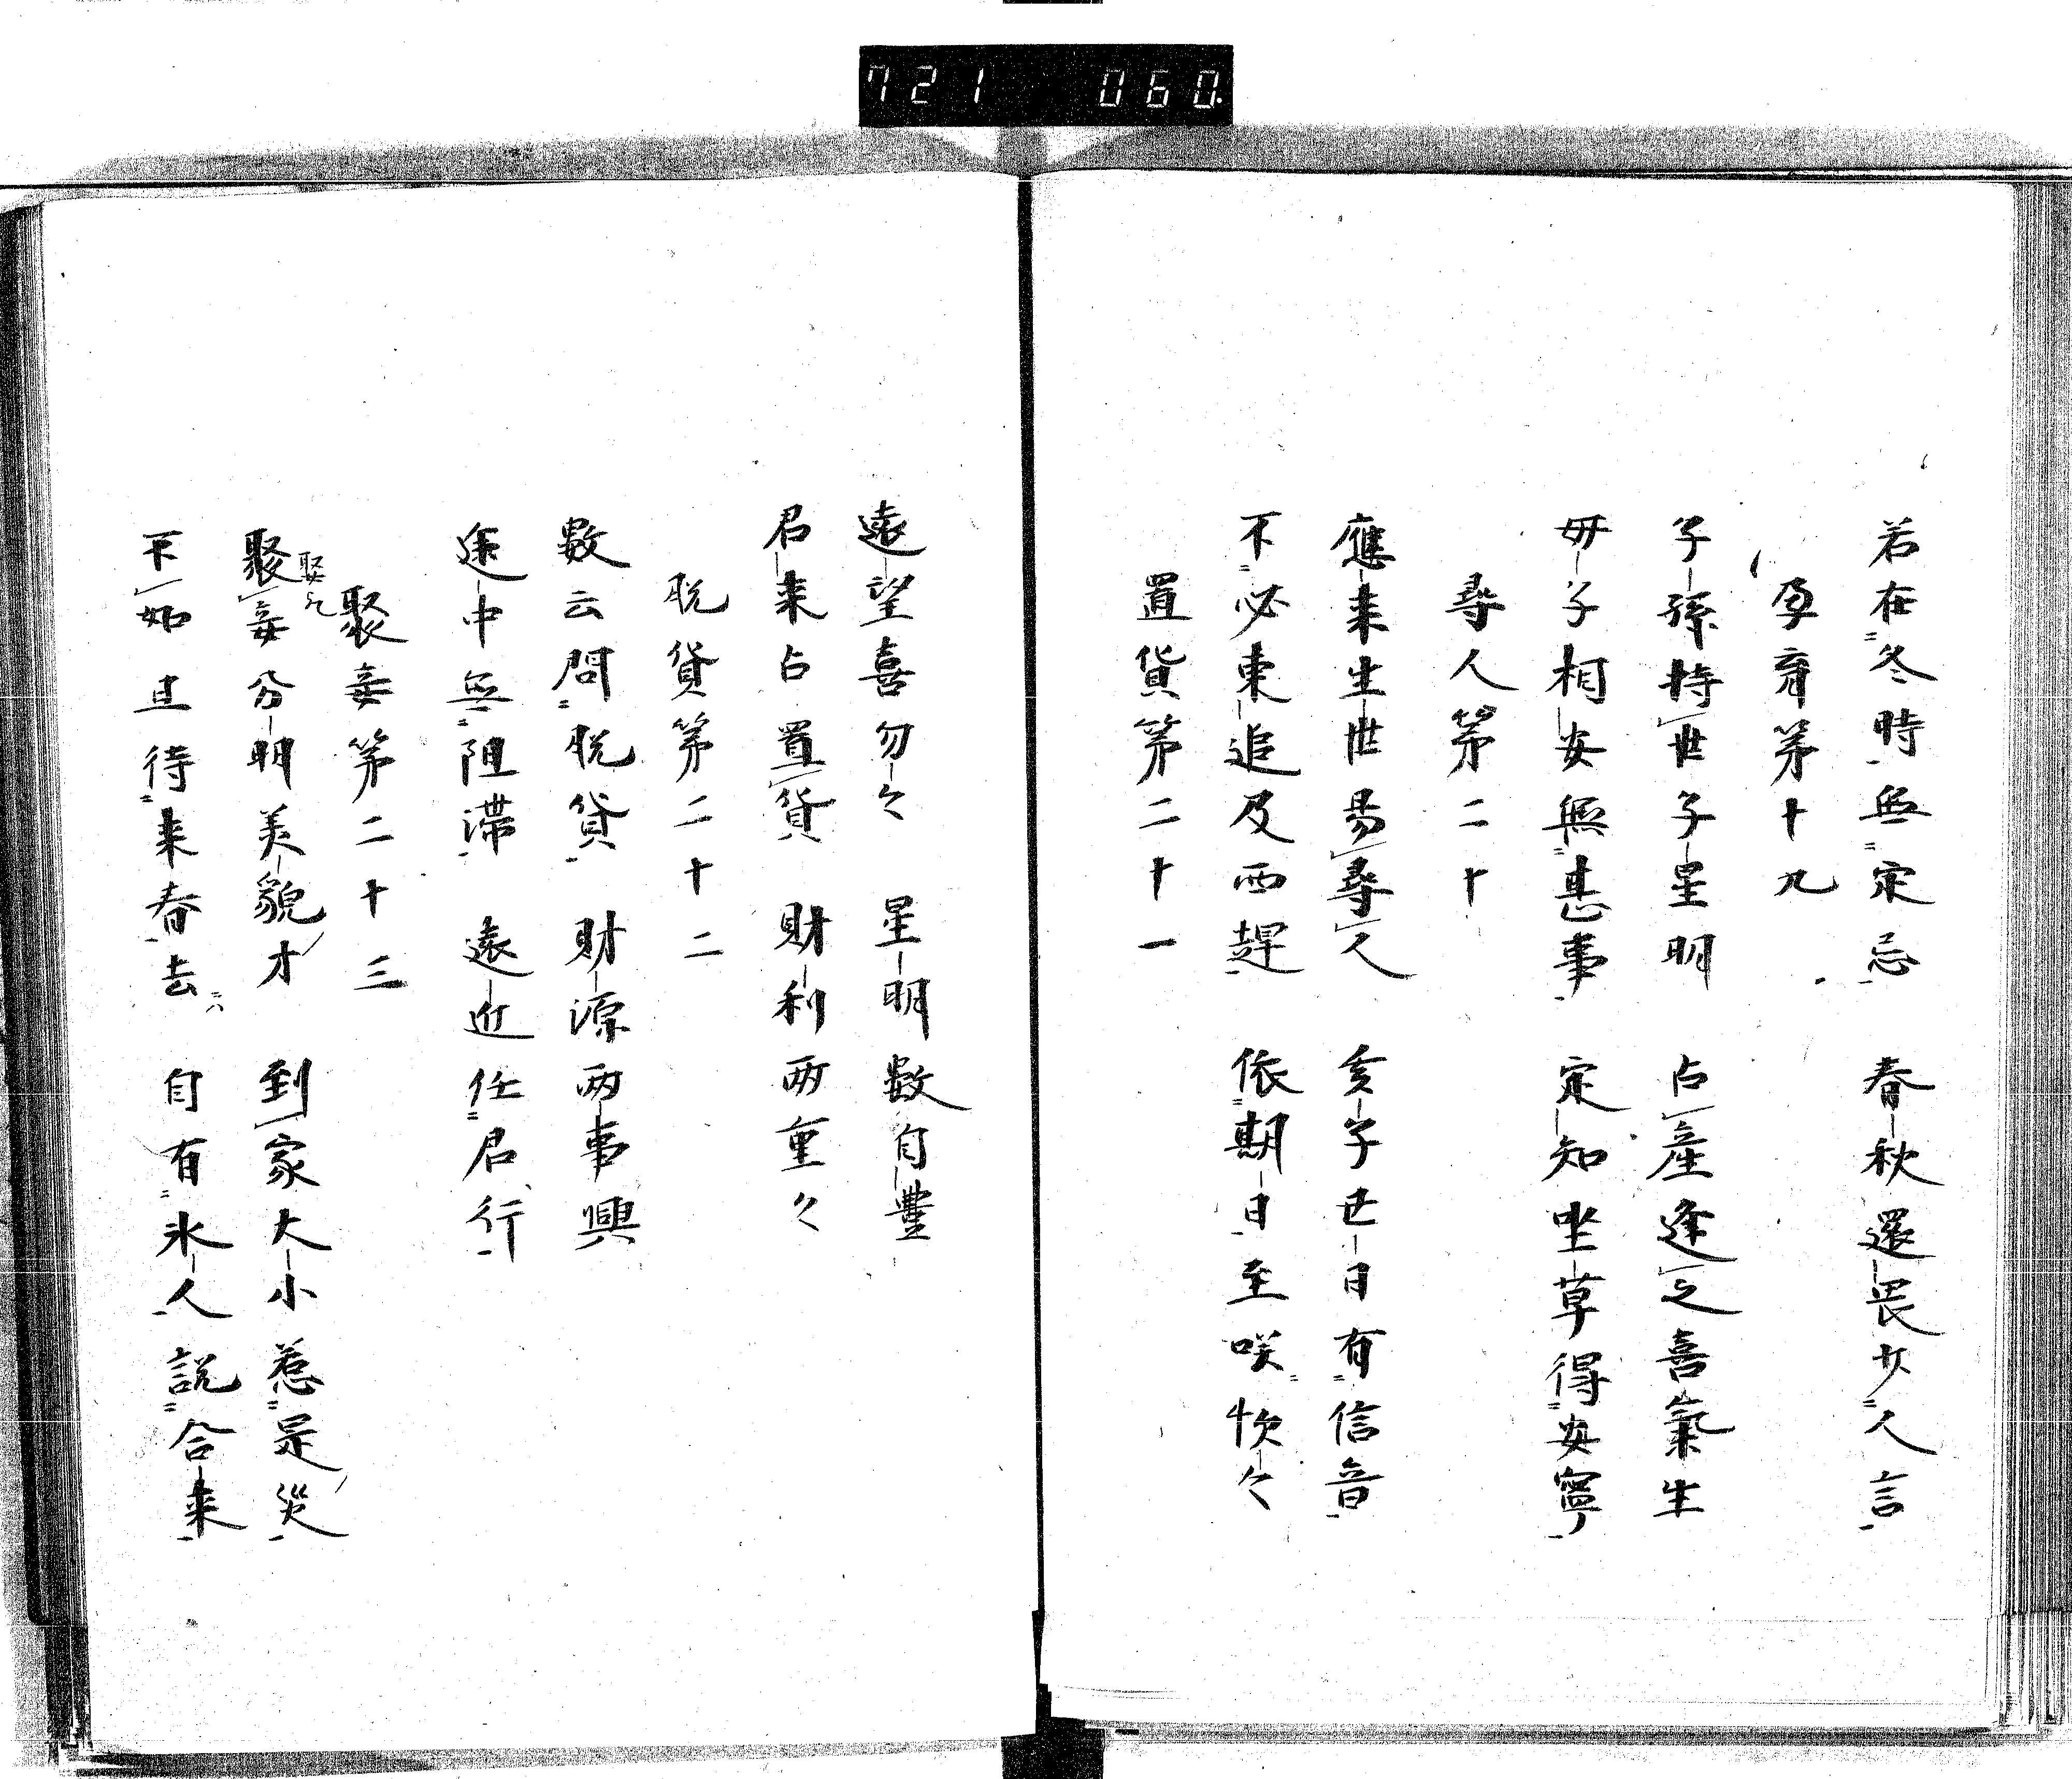 721 060.
若在冬時無定忌 春秋還畏少人言
孕育第十九
子孫持世子星明 占産逢之喜氣生
毋子相安無甚事 定知坐草得安寧
尋人第二十
應来生世易尋人 亥子世日有信音
不必東追及西趕 依期日至咲忻々
置貨第二十一
遠望喜勿々 星明數自豐
君来占置貨 財利両重々
脱貸第二十二
數云問脱貸 財源両事興
途中無阻滞 遠近任君行
聚妾第二十三
娶
聚妾分明美貌才 到家大小惹是災
不如且待来春去 自有氷人説合来